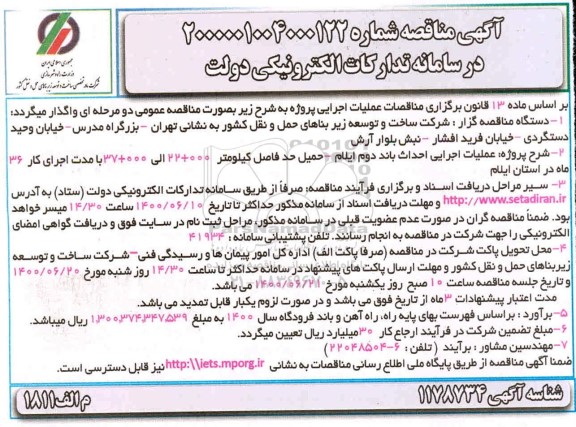 جمهوری اسلامی ایران
وزارت راه و شهرسازی
آگهی مناقصه شماره ۲۰۰۰۰۰۱۰۰۴۰۰۰۱۲۲
در سامانه تدارکات الکترونیکی دولت
بر اساس ماده ۱۳ قانون برگزاری مناقصات عملیات اجرایی پروژه به شرح زیر بصورت مناقصه عمومی دو مرحله ای واگذار میگردد:
۱-دستگاه مناقصه گزار : شرکت ساخت و توسعه زیر بناهای حمل و نقل کشور به نشانی تهران - بزرگراه مدرس- خیابان وحید
دستگردی - خیابان فرید افشار - نبش بلوار آرش
۲-شرح پروژه: عملیات اجرایی احداث باند دوم ایلام - حمیل حد فاصل کیلومتر ۲۲+۰۰۰ الی ۳۷+۰۰۰ با مدت اجرای کار ۳۶
ماه در استان ایلام
۳- سیر مراحل دریافت اسناد و برگزاری فرآیند مناقصه: صرفاً از طریق سامانه تدارکات الکترونیکی دولت (ستاد) به آدرس
http://www.setadiran.ir و مهلت دریافت اسناد از سامانه مذکور حداکثر تا تاریخ ۱۴۰۰/۰۶/۱۰ ساعت ۱۴/۳۰ میسر خواهد
بود. ضمناً مناقصه گران در صورت عدم عضویت قبلی در سامانه مذکور، مراحل ثبت نام در سایت فوق و دریافت گواهی امضای
الکترونیکی را جهت شرکت در مناقصه به انجام رسانند. تلفن پشتیبانی سامانه : ۴۱۹۳۴
۴-محل تحویل پاکت شرکت در مناقصه (صرفا پاکت الف) اداره کل امور پیمان ها و رسیدگی فنی - شرکت ساخت و توسعه
زیربناهای حمل و نقل کشور و مهلت ارسال پاکت های پیشنهاد در سامانه حداکثر تا ساعت ۱۴/۳۰ روز شنبه مورخ ۱۴۰۰/۰۶/۲۰
و تاریخ جلسه مناقصه ساعت ۱۰ صبح روز یکشنبه مورخ ۱۴۰۰/۰۶/۲۱ می باشد.
مدت اعتبار پیشنهادات ۳ ماه از تاریخ فوق می باشد و در صورت لزوم یکبار قابل تمدید می باشد.
۵-برآورد : براساس فهرست بهای پایه راه، راه آهن و باند فرودگاه سال ۱۴۰۰ به مبلغ ۱,۳۰۰,۳۷۴,۳۴۷,۵۳۹ ریال میباشد.
۶-مبلغ تضمین شرکت در فرآیند ارجاع کار ۳۰ میلیارد ریال تعیین میگردد.
۷-مهندسین مشاور : برآیند ( تلفن : ۶-۲۲۰۴۸۵۰۴)
ضمنا آگهی مناقصه از طریق پایگاه ملی اطلاع رسانی مناقصات به نشانی http:\\iets.mporg.ir نیز قابل دسترسی است.
شناسه آگهی ۱۱۷۸۷۳۴
م الف ۱۸۱۱